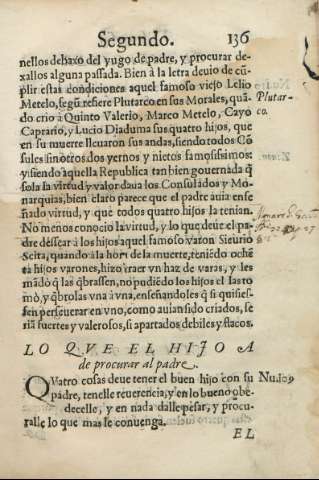 Segundo. 136
nellos debaxo del yugo de padre, y procurar de-
xallos alguna passada. Bien à la letra deuio de cũ-
plir estas condiciones aquel famoso viejo Lelio
Metelo, segũ refiere Plutarco en sus Morales, quã-
do crio à Quinto Valerio, Marco Metelo, Cayo
Caprario, y Lucio Diaduma sus quatro hijos, que
en su muerte lleuaron sus andas, siendo todos Cõ-
sules sino tros dos yernos y nietos famosissimos:
y siendo aquella Republica tan bien governada q̃
sola la virtud y valor daua los Consulados y Mo-
narquias, bien claro parece que el padre auia ense-
ñado virtud, y que todos quatro hijos la tenian.
No menos conocio la virtud, y lo que deue el pa-
dre dessear à los hijos aquel famoso varon Sieurio
Scita, quando à la hora de la muerte, teniẽdo ochẽ
ta hijos varones, hizo traer vn haz de varas, y les
mãdò q̃ las q̃brassen, no pudiẽdo los hijos el las to
mò, y q̃brolas vna à vna, enseñandoles q̃ si quisies-
sen perseuerar en vno, como auian sido criados, se-
riã fuertes y valerosos, si apartados debiles y flacos.
Plutar-
co.
LO QVE EL HIJO A
de procurar al padre.
QVatro cosas deue tener el buen hijo con su
padre, tenelle reuerencia, y en lo bueno obe-
decelle, y en nada dalle pesar, y procu-
ralle lo que mas le conuenga.
Nu. 109
EL